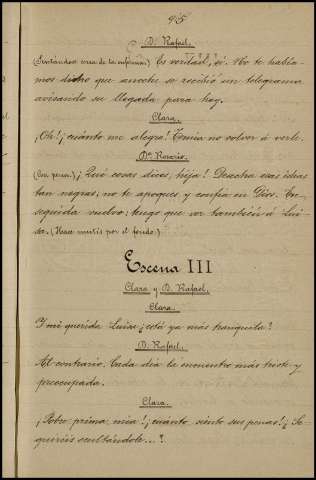 95
D. Rafael.
(Sentándose cerca de la enferma.) Es verdad, sí. No te había-
mos dicho que anoche se recibió un telegrama
avisando su llegada para hoy.
Clara.
¡Oh! ¡cuánto me alegra! Temía no volver á verle.
Dª Rosario.
(Con pena.) ¡Qué cosas dices, hija! Desecha esas ideas
tan negras; no te apoques y confía en Dios. En-
seguida vuelvo; tengo que ver también á Lui-
sa. (Hace mutis por el fondo.)
Escena III
Clara y D. Rafael.
Clara.
Y mi querida Luisa ¿está ya más tranquila?
D. Rafael.
Al contrario. Cada día la encuentro más triste y
preocupada.
Clara.
¡Pobre prima mía! ¡cuánto siento sus penas! ¿Se
quiréis ocultándole...?